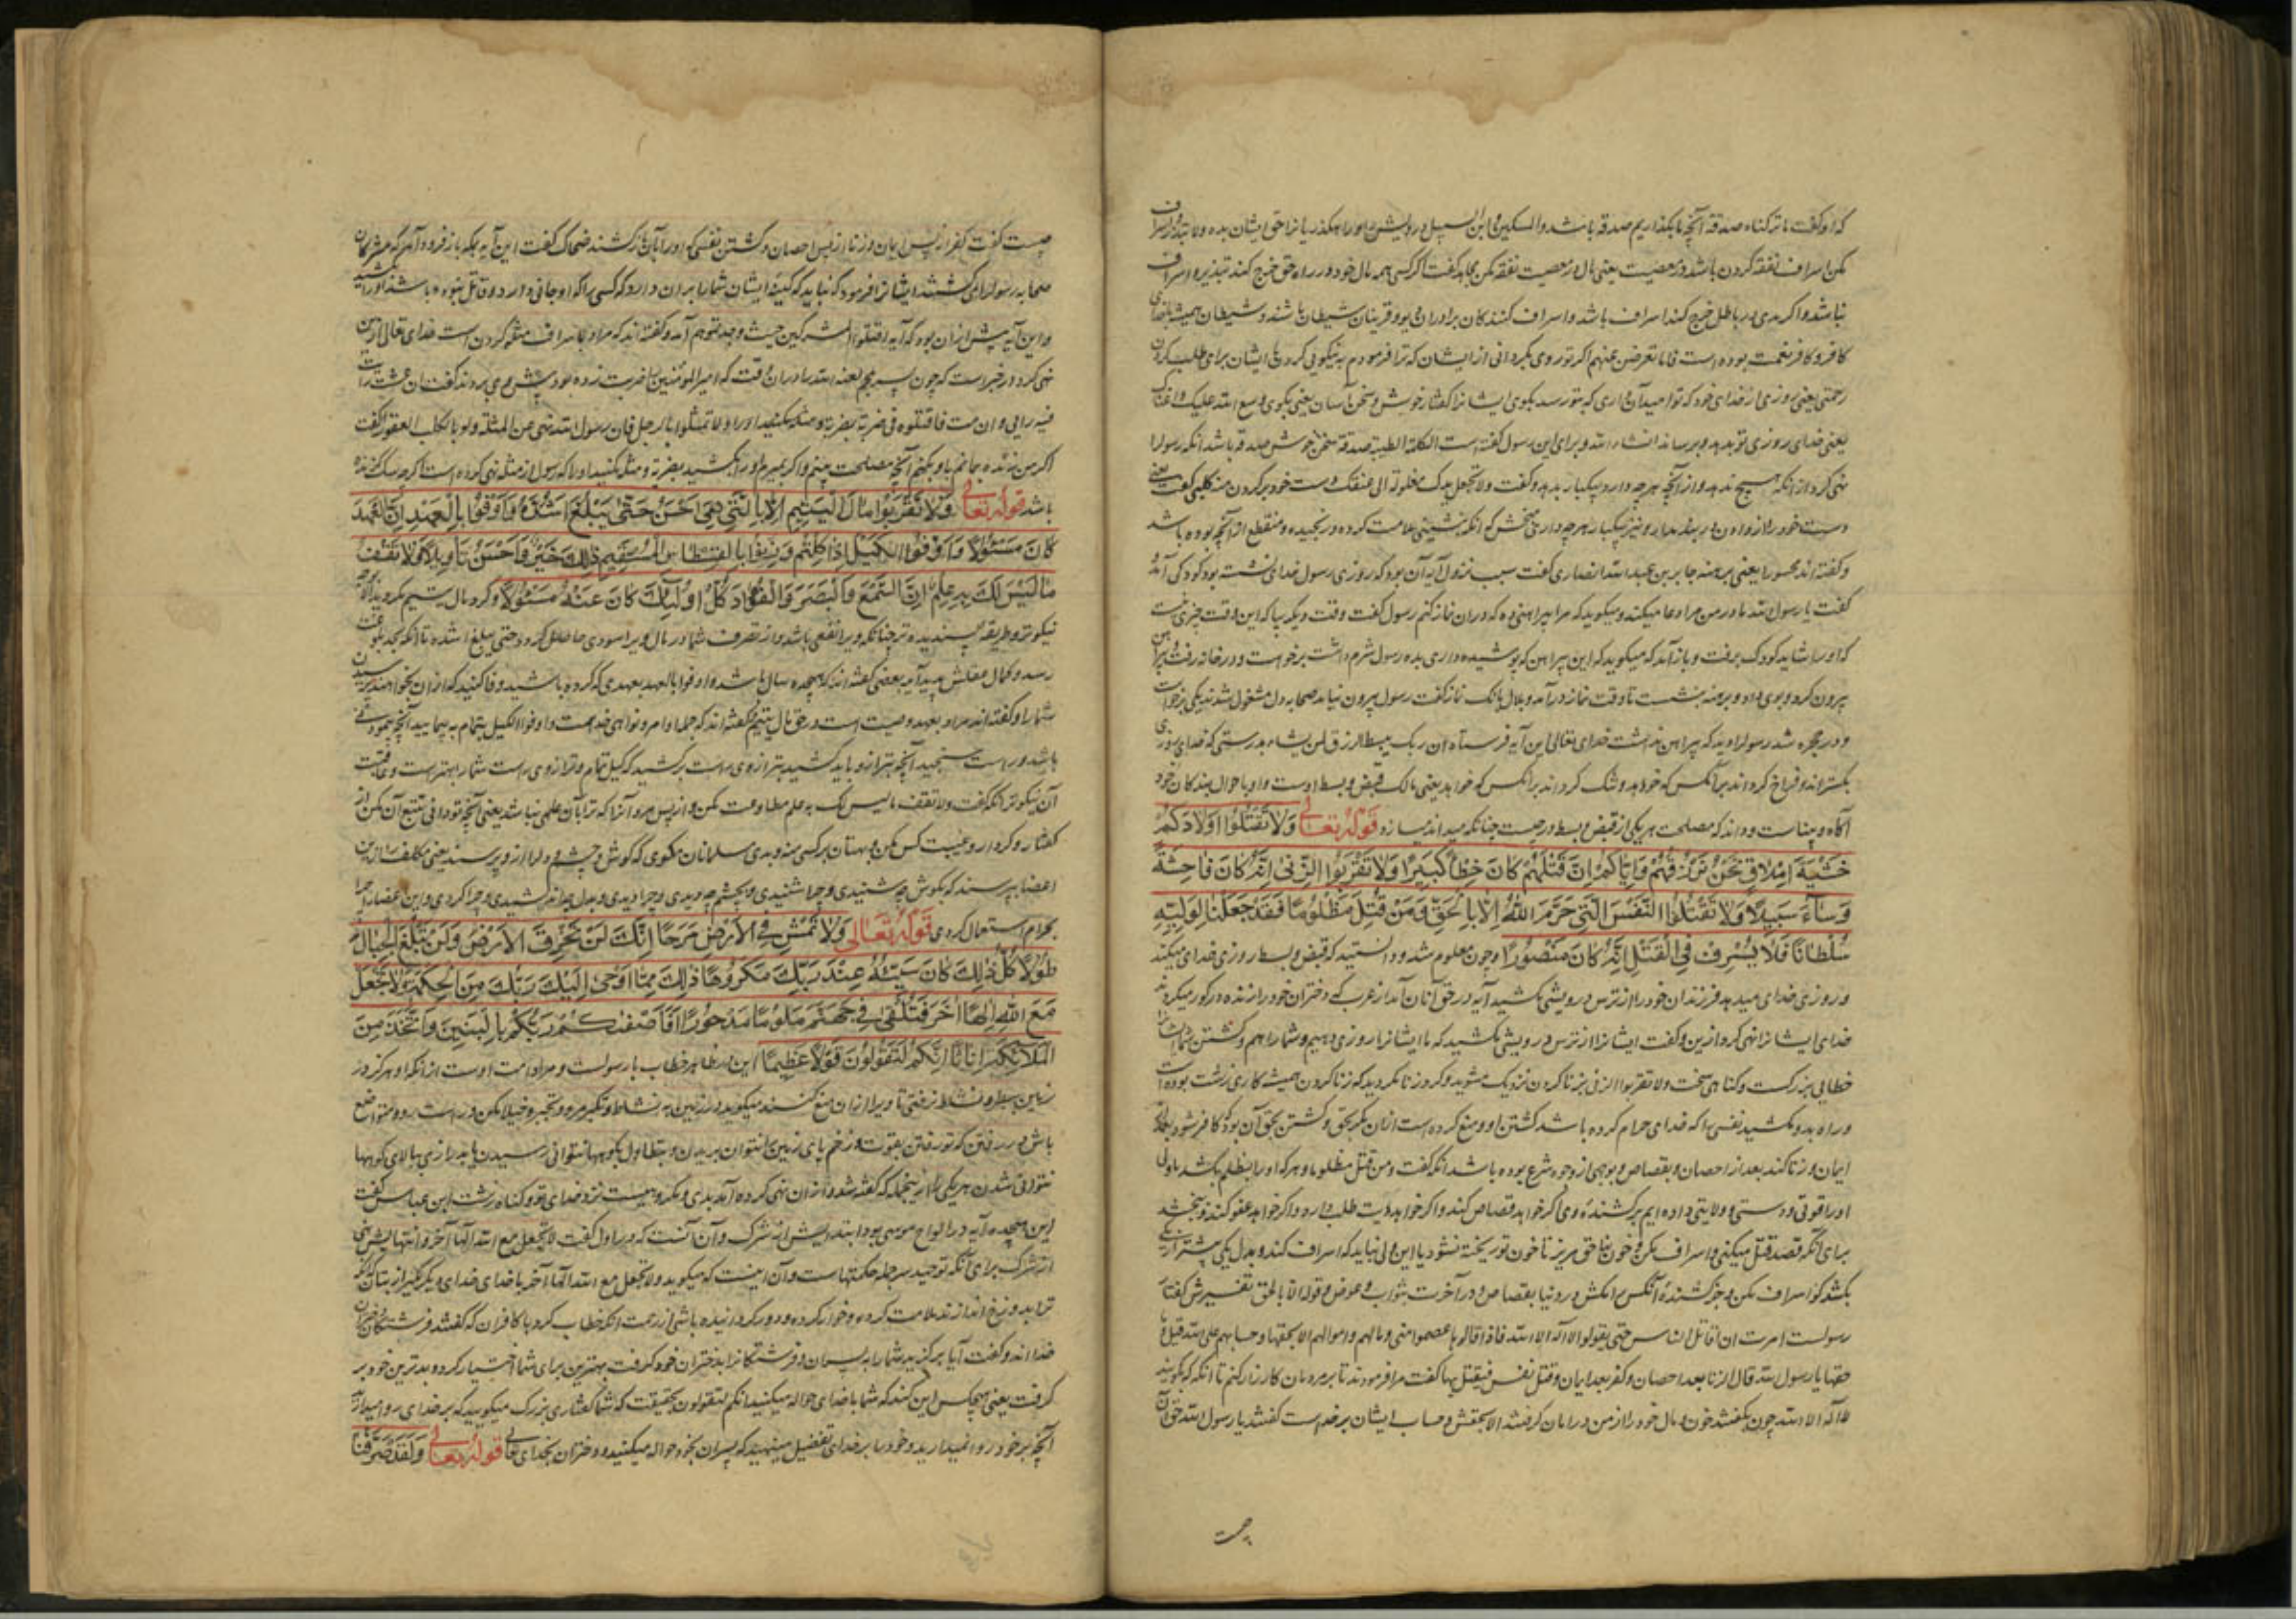 که او گفت ما ترکناه صدقة آنچه ما بگذاریم صدقه باشد والمسکین وابن السبیل و درویش را و راهگذریانرا حق ایشان بده ولا تبذر و اسراف
مکن اسراف نفقه کردن باشد در معصیت یعنی مال در معصیت نفقه مکن مجاهد گفت اگر کسی همه مال خود در راه حق خرج کند تبذیر و اسراف
نباشد و اگر مدی در باطل خرج کند اسراف باشد و اسراف کنندکان برادران دیو و قرینان شیطان باشند و شیطان همیشه بخدای
کافر و کافر نعمت بوده است فاما تعرضن عنهم اگر تو روی بگردانی از ایشان که ترا فرمودم به نیکویی کردن با ایشان برای طلب کردن
رحمتی یعنی روزی از خدای خود که تو امید آن داری که بتو رسد بگوی ایشانرا گفتار خوش و سخن آسان یعنی بگوی وسع الله علیک و اغناک
یعنی خدای روزی تو بدهد و برساند انشاء الله و برای این رسول گفته است الکلمة الطیبة صدقة سخن خوش صدقه باشد آنکه رسولرا
نهی کرد از آنکه هیچ ندهد و از آنچه هرچه دارد بیکبار بدهد و گفت ولا تجعل یدک مغلولة الی عنقک دست خود بر گردن منه کلبی گفت یعنی
دست خود را از دادن در بند مدار و نیز بیکبار هرچه داری مبخش که آنکه بنشینی ملامت کرده و رنجیده و منقطع از آنچه بوده باشد
و گفته اند محسورا یعنی برهنه جابر بن عبد الله انصاری گفت سبب نزول آیه آن بود که روزی رسول خدای نشسته بود کودکی آمد
گفت یا رسول الله مادر من مرا دعا میکند و میگوید که مرا پیراهنی ده که در آن نماز کنم رسول گفت وقت دیگر بیا که این وقت چیزی نیست
که او را شاید کودک برفت و باز آمد که میگوید که این پیراهن که پوشیده داری بده رسول شرم داشت برخواست و در خانه رفت پیراهن
بیرون کرد و بوی داد و برهنه بنشست تا وقت نماز درآمد و بلال بانک نماز گفت رسول بیرون نیامد صحابه دل مشغول شدند یکی برخواست
و در حجره شد رسولرا دید که پیراهن نداشت خدای تعالی این آیه فرستاد ان ربک یبسط الرزق لمن یشاء بدرستی که خدای روزی
بگستراند و فراخ گرداند بر آنکس که خواهد و تنگ گرداند بر آنکس که خواهد یعنی مالک قبض و بسط اوست و او باحوال بندکان خود
آگاه و بیناست و داند که مصلحت هر یکی از قبض و بسط در چیست چنانکه میداند میسازد قوله تعالی وَلَا تَقْتُلُوا اَوْلَادَكُمْ
خَشْيَةَ اِمْلَاقٍ نَحْنُ نَرْزُقُهُمْ وَاِيَّاكُمْ اِنَّ قَتْلَهُمْ كَانَ خِطْاً كَبِيْرًا وَلَا تَقْرَبُوا الزِّنٰى اِنَّهُ كَانَ فَاحِشَةً
وَسَاءَ سَبِيْلًا وَلَا تَقْتُلُوا النَّفْسَ الَّتِي حَرَّمَ اللّٰهُ اِلَّا بِالْحَقِّ وَمَنْ قُتِلَ مَظْلُوْمًا فَقَدْ جَعَلْنَا لِوَلِيِّهِ
سُلْطَانًا فَلَا يُسْرِفْ فِي الْقَتْلِ اِنَّهُ كَانَ مَنْصُوْرًا و چون معلوم شد و دانستید که قبض و بسط روزی خدای میکند
و روزی خدای میدهد فرزندان خود را از ترس درویشی مکشید آیه در حق آنان آمد از عرب که دختران خود را زنده در گور میکردند
خدای ایشانرا نهی کرد ازین و گفت ایشانرا از ترس درویشی مکشید که ما ایشانرا روزی دهیم و شما را هم و کشتن شما ایشانرا
خطایی بزرکست و کناهی سخت ولا تقربوا الزنی بزنا کردن نزدیک مشوید و گرد زنا مگردید که زنا کردن همیشه کاری زشت بوده است
و راه بد و مکشید نفسی را که خدای حرام کرده باشد کشتن او و منع کرده است از آن مگر بحق و کشتن بحق آن بود که کافر شود بعد از
ایمان و زنا کند بعد از احصان و بقصاص و بوجهی از وجوه شرع بوده باشد آنکه گفت ومن قتل مظلوما و هر که او را بظلم بکشد ما ولی
او را قوتی و دستی و ولایتی داده ایم بر کشنده وی اگر خواهد قصاص کند و اگر خواهد دیت طلب دارد و اگر خواهد عفو کند و ببخشد
برای آنکه قصد قتل میکنی اسراف مکن و خون بناحق مریز تا خون تو ریخته نشود یا این ولی نباید که اسراف کند و بدل یکی بیشتر از یکی
بکشد گو اسراف مکن و جز کشنده آنکس را مکش در دنیا بقصاص و در آخرت بثواب و عوض و قوله الا بالحق تفسیرش گفتار
رسولست امرت ان اقاتل الناس حتی یقولوا لا اله الا الله فاذا قالوها عصموا منی دماءهم واموالهم الا بحقها وحسابهم علی الله قیل وما
حقها یا رسول الله قال الزنا بعد احصان و کفر بعد ایمان وقتل نفس فیقتل بها گفت مرا فرمودند تا بر مردمان کارزار کنم تا آنکه که بگویند
لا اله الا الله چون بگفتند خون و مال خود را از من در امان گرفتند الا بحقش و حساب ایشان بر خداست گفتند یا رسول الله حق آن
چیست
چیست گفت کفر از پس ایمان و زنا از پس احصان و کشتن نفسی که او را بآن باز کشند ضحاک گفت این آیه بمکه باز فرود آمد که مشرکان
صحابه رسول را می کشتند ایشانرا فرمود که نباید که کینه ایشان شما را بر آن دارد که کسی را که او جانی دارد و قاتل نبوده باشد او را بکشید
و این آیه پیش از آن بود که آیه اقتلوا المشرکین حیث وجدتموهم آمد و گفته اند که مراد باسراف مثله کردن است خدای تعالی ازین
نهی کرد و در خبر است که چون پسر ملجم لعنه الله را در آن وقت که امیر المؤمنین را ضربت زده بود پیش وی بردند گفت ان عشت رأیت
فیه رأیی وان مت فاقتلوه فی ضربة بضربة ومثله مکنید او را ولا تمثلوا بالرجل فان رسول الله نهی عن المثلة ولو بالکلب العقور گفت
اگر من زنده بمانم با او بکنم آنچه مصلحت بینم و اگر بمیرم او را بکشید بضربة و مثله مکنید او را که رسول از مثله نهی کرده است اگرچه سک گزنده
باشد قوله تعالی وَلَا تَقْرَبُوا مَالَ الْيَتِيْمِ اِلَّا بِالَّتِي هِيَ اَحْسَنُ حَتّٰى يَبْلُغَ اَشُدَّهُ وَاَوْفُوا بِالْعَهْدِ اِنَّ الْعَهْدَ
كَانَ مَسْئُوْلًا وَاَوْفُوا الْكَيْلَ اِذَا كِلْتُمْ وَزِنُوْا بِالْقِسْطَاسِ الْمُسْتَقِيْمِ ذٰلِكَ خَيْرٌ وَاَحْسَنُ تَأْوِيْلًا وَلَا تَقْفُ
مَا لَيْسَ لَكَ بِهِ عِلْمٌ اِنَّ السَّمْعَ وَالْبَصَرَ وَالْفُؤَادَ كُلُّ اُولٰئِكَ كَانَ عَنْهُ مَسْئُوْلًا و گرد مال یتیم مگردید الا بوجه
نیکوتر و طریقه پسندیده تر چنانکه ویرا نفعی باشد و از تصرف شما در مال ویرا سودی حاصل گردد حتی یبلغ اشده تا آنکه بحد بلوغت
رسد و کمال عقلش پدید آید بعضی گفته اند که هجده سال باشد و اوفوا بالعهد بعهدی که کرده باشید وفا کنید که از آن بخواهند پرسیدن
شما را و گفته اند مراد بعهد وصیت است در حق مال یتیم و گفته اند که جمله اوامر و نواهی خداست و اوفوا الکیل بتمام به پیمایید آنچه پیمودنی
باشد و راست سنجید آنچه بترازو باید کشید بترازوی راست برکشید که کیل تمام و ترازوی راست شما را بهتر است و عاقبت
آن نیکوتر آنکه گفت ولا تقف ما لیس لک به علم مطاوعت مکن و از پس مرو آنرا که ترا بآن علمی نباشد یعنی آنچه تو ندانی تتبع آن مکن از
گفتار و کردار و غیبت کس مکن و بهتان بر کسی منه و بدی مسلمانان مگوی که گوش و چشم و دل را ازو پرسند یعنی مکلف را ازین
اعضا بپرسند که بگوش چه شنیدی و چرا شنیدی و بچشم چه دیدی و چرا دیدی و بدل چه اندیشیدی و چرا کردی و این اعضا را چرا
بحرام استعمال کردی قوله تعالی وَلَا تَمْشِ فِي الْاَرْضِ مَرَحًا اِنَّكَ لَنْ تَخْرِقَ الْاَرْضَ وَلَنْ تَبْلُغَ الْجِبَالَ
طُوْلًا كُلُّ ذٰلِكَ كَانَ سَيِّئُهُ عِنْدَ رَبِّكَ مَكْرُوْهًا ذٰلِكَ مِمَّا اَوْحٰى اِلَيْكَ رَبُّكَ مِنَ الْحِكْمَةِ وَلَا تَجْعَلْ
مَعَ اللّٰهِ اِلٰهًا اٰخَرَ فَتُلْقٰى فِي جَهَنَّمَ مَلُوْمًا مَدْحُوْرًا اَفَاَصْفٰىكُمْ رَبُّكُمْ بِالْبَنِيْنَ وَاتَّخَذَ مِنَ
الْمَلَائِكَةِ اِنَاثًا اِنَّكُمْ لَتَقُوْلُوْنَ قَوْلًا عَظِيْمًا این در ظاهر خطاب با رسولست و مراد امت اوست از آنکه او هرگز در
زمین ببطر و نشاط نرفتی تا ویرا از آن منع کنند میگوید در زمین به نشاط و تکبر مرو و تجبر و خیلا مکن و راست رو و متواضع
باش در رفتن که تو رفتن بقوت و زخم پای زمین را نتوان بریدن و بتطاول بکوهها نتوانی رسیدن یا بدرازی ببالای کوهها
نتوانی شدن هر یکی را ازینجمله که گفته شد و از آن نهی کرده آمد بدی و مکروهیست نزد خدای تو و کناه زشت ابن عباس گفت
این هجده آیه در الواح موسی بود ابتدایش از شرک و آن آنست که در اول گفت لا تجعل مع الله الها آخر و انتهایش نهی
از شرک برای آنکه توحید سر جمله حکمتهاست و آن اینست که میگوید ولا تجعل مع الله الها آخر با خدای خدای دیگر مگیر از بتان که آنکه
ترا بدوزخ اندازند ملامت کرده و خوار کرده و دور گردانیده باشی از رحمت آنکه خطاب کرد با کافران که گفتند فرشتکان دختران
خدااند و گفت آیا برگزید شما را به پسران و فرشتکانرا بدختران خود گرفت بهترین برای شما اختیار کرد و بدترین خود بر
گرفت یعنی هیچکس این کند که شما با خدای حواله میکنید انکم لتقولون بحقیقت که شما گفتاری بزرک میگویید که بر خدای روا میدارید
آنچه بر خود روا نمیدارید و خود را بر خدای تفضیل مینهید که پسران بخود حواله میکنید و دختران بخدای تعالی قوله تعالی وَلَقَدْ صَرَّفْنَا